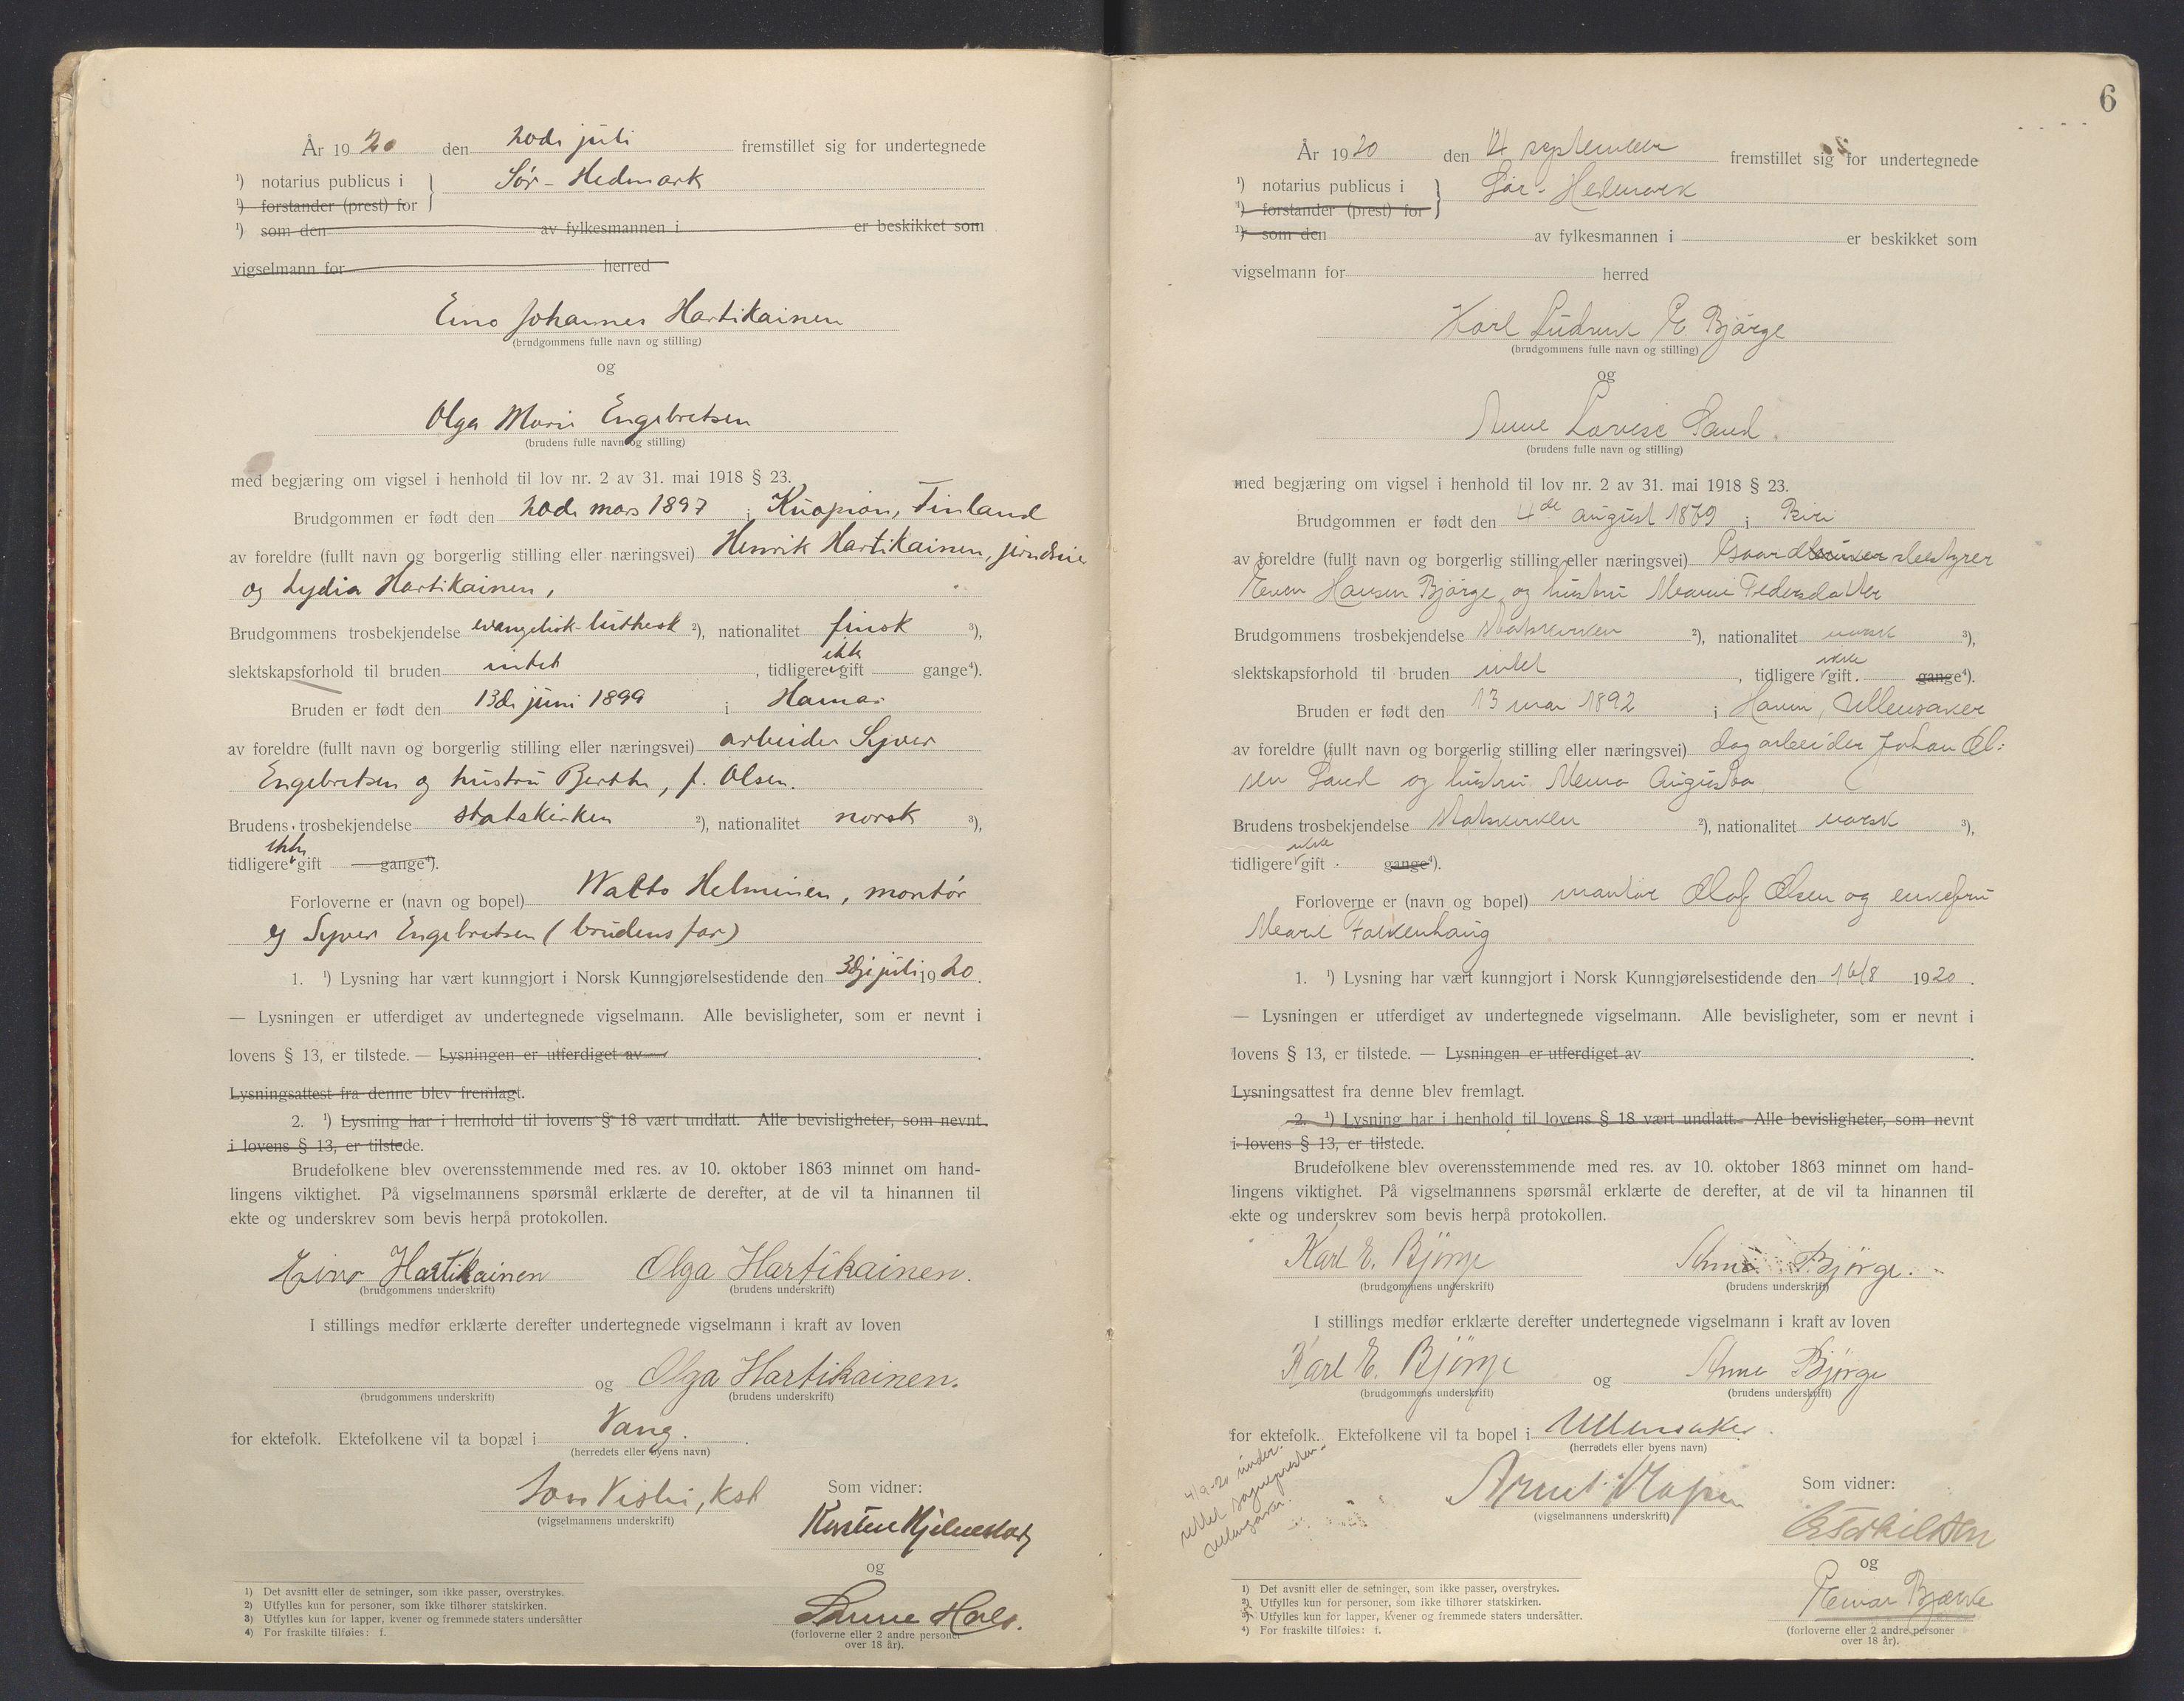 År 1920 den 20de juli fremstillet sig for undertegnede
¹) notarius publicus i Sør-Hedmark
¹) forstander (prest) for
¹) som den av fylkesmannen i er beskikket som
vigselmann for herred
Eino Johannes Hartikainen
(brudgommens fulle navn og stilling)
og
Olga Marie Engebretsen
(brudens fulle navn og stilling)
med begjæring om vigsel i henhold til lov nr. 2 av 31. mai 1918 § 23.
Brudgommen er født den 20de mars 1897 i Kuopion, Finland
av foreldre (fullt navn og borgerlig stilling eller næringsvei) Henrik Hartikainen,
og Lydia Hartikainen,
Brudgommens trosbekjendelse evangelisk-luthersk ²), nationalitet finsk ³),
slektskapsforhold til bruden intet, tidligere ikke gift gange⁴).
Bruden er født den 13de juni 1899 i Hamar
av foreldre (fullt navn og borgerlig stilling eller næringsvei) arbeider Syver
Engebretsen og hustru Berthe, f. Olsen.
Brudens trosbekjendelse statskirken ²), nationalitet norsk ³),
tidligere ikke gift gange⁴).
Forloverne er (navn og bopel) Walto Helminen, montør
og Syver Engebretsen (brudens far)
1. ¹) Lysning har vært kunngjort i Norsk Kunngjørelsestidende den juli 1920.
— Lysningen er utferdiget av undertegnede vigselmann. Alle bevisligheter, som er nevnt i
lovens § 13, er tilstede. — Lysningen er utferdiget av
Lysningsattest fra denne blev fremlagt.
2. ¹) Lysning har i henhold til lovens § 18 vært undlatt. Alle bevisligheter, som nevnt
i lovens § 13, er tilstede.
Brudefolkene blev overensstemmende med res. av 10. oktober 1863 minnet om hand-
lingens viktighet. På vigselmannens spørsmål erklærte de derefter, at de vil ta hinannen til
ekte og underskrev som bevis herpå protokollen.
Eino Hartikainen Olga Hartikainen.
(brudgommens underskrift) (brudens underskrift)
I stillings medfør erklærte derefter undertegnede vigselmann i kraft av loven
og Olga Hartikainen.
(brudgommens underskrift) (brudens underskrift)
for ektefolk. Ektefolkene vil ta bopæl i Vang.
(herredets eller byens navn)
Som vidner:
(vigselmannens underskrift)
og
(forloverne eller 2 andre personer
over 18 år).
1) Det avsnitt eller de setninger, som ikke passer, overstrykes.
2) Utfylles kun for personer, som ikke tilhører statskirken.
3) Utfylles kun for lapper, kvener og fremmede staters undersåtter
4) For fraskilte tilføies: f.
6
År 1920 den september fremstillet sig for undertegnede
¹) notarius publicus i Sør-Hedmark
¹) forstander (prest) for
¹) som den av fylkesmannen i er beskikket som
vigselmann for herred
Karl Ludvig E Bjørge
(brudgommens fulle navn og stilling)
og
Anne Lovise Sand.
(brudens fulle navn og stilling)
med begjæring om vigsel i henhold til lov nr. 2 av 31. mai 1918 § 23.
Brudgommen er født den 4de august 1879 i Biri
av foreldre (fullt navn og borgerlig stilling eller næringsvei) Gaardbruker bestyrer
Even Hansen Bjørge og hustru Marie Pedersdatter
Brudgommens trosbekjendelse statskirken ²), nationalitet norsk ³),
slektskapsforhold til bruden intet, tidligere ikke gift. gange⁴).
Bruden er født den 13 mai 1892 i Ullensaker
av foreldre (fullt navn og borgerlig stilling eller næringsvei) dagarbeider Johan Ol:
sen Sand og hustru Augusta
Brudens trosbekjendelse statskirken ²), nationalitet norsk ³),
tidligere ikke gift. gange⁴).
Forloverne er (navn og bopel) montør Olaf Olsen og enkefru
Marie Falkenhaug
1. ¹) Lysning har vært kunngjort i Norsk Kunngjørelsestidende den 16/8 1920.
— Lysningen er utferdiget av undertegnede vigselmann. Alle bevisligheter, som er nevnt i
lovens § 13, er tilstede. — Lysningen er utferdiget av
Lysningsattest fra denne blev fremlagt.
2. ¹) Lysning har i henhold til lovens § 18 vært undlatt. Alle bevisligheter, som nevnt
i lovens § 13, er tilstede.
Brudefolkene blev overensstemmende med res. av 10. oktober 1863 minnet om hand-
lingens viktighet. På vigselmannens spørsmål erklærte de derefter, at de vil ta hinannen til
ekte og underskrev som bevis herpå protokollen.
Karl E. Bjørge Anne Bjørge.
(brudgommens underskrift) (brudens underskrift)
I stillings medfør erklærte derefter undertegnede vigselmann i kraft av loven
Karl E. Bjørge og Anne Bjørge
(brudgommens underskrift) (brudens underskrift)
for ektefolk. Ektefolkene vil ta bopel i Ullensaker.
(herredets eller byens navn)
under-
rettet sognepresten
Ullensaker.
Som vidner:
(vigselmannens underskrift)
og
(forloverne eller 2 andre personer
over 18 år).
1) Det avsnitt eller de setninger, som ikke passer, overstrykes.
2) Utfylles kun for personer, som ikke tilhører statskirken.
3) Utfylles kun for lapper, kvener og fremmede staters undersåtter.
4) For fraskilte tilføies: f.